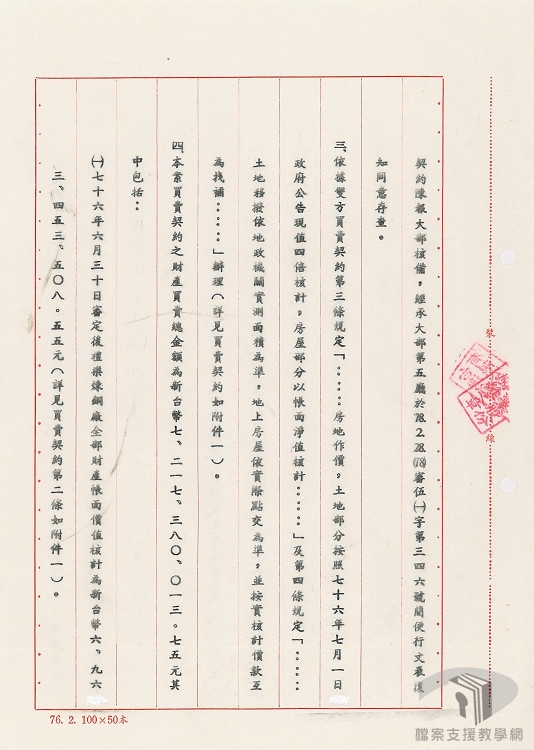 契約陳報大部核備，經承大部第五廳於78.2.28.(78)審伍㈠字第三四六號簡便行文表復
知同意存查。
三、依據雙方買賣契約第三條規定「……房地作價，土地部分按照七十六年七月一日
政府公告現值四倍核計，房屋部分以帳面淨值核計……」及第四條規定「……
土地移撥依地政機關實測面積為準，地上房屋依實際點交為準，並按實核計價款互
為找補……」辦理（詳見買賣契約如附件一）。
四、本案買賣契約之財產買賣總金額為新台幣七、二一七、三八〇、〇一三．七五元其
中包括：
㈠七十六年六月三十日審定後禮樂煉銅廠全部財產帳面價值核計為新台幣六、九六
三、四五三、五〇八．五五元（詳見買賣契約第二條如附件一）。
裝
線
76. 2. 100×50本
檔案支援教學網